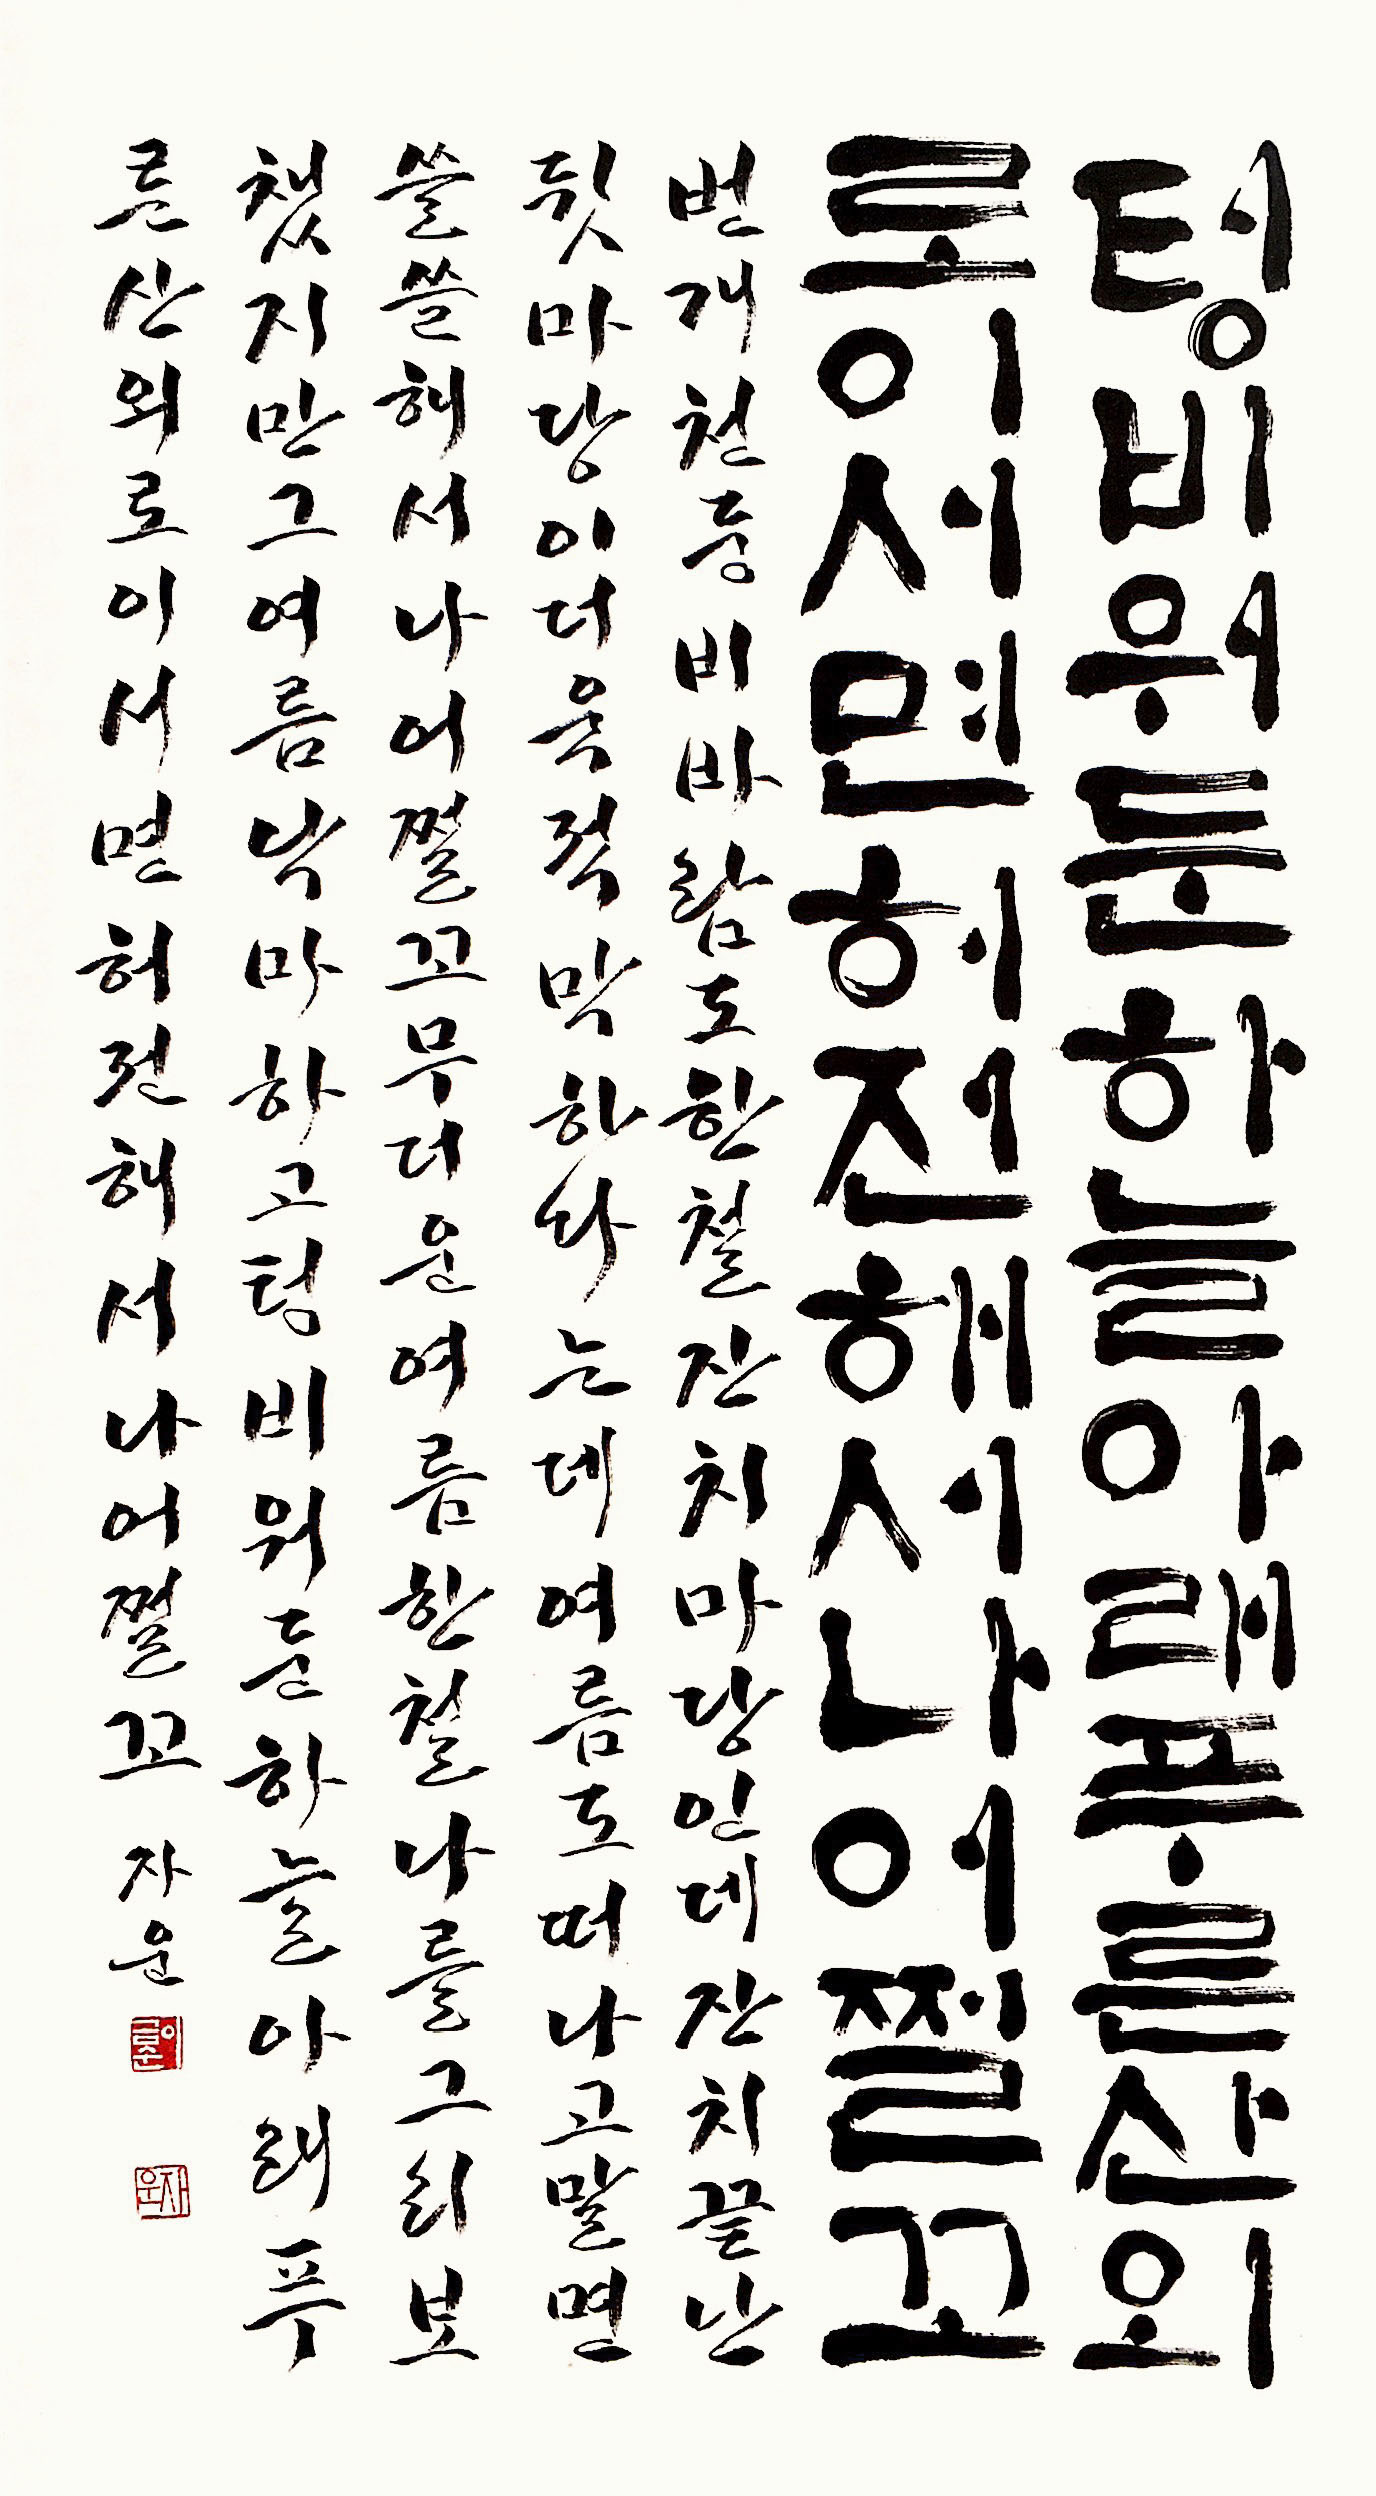 텅비워둔하늘아래푸른산외
로이서면허전해서나어쩔꼬
번개천둥비바람도한철잔치마당인데잔치끝난
뒷마당이더욱적막하다는데여름도떠나고말면
쓸쓸해서나어쩔꼬무더운여름한철나를그리보
챘지만그여름낙마하고텅비워둔하늘아래푸
른산외로이서면허전해서나어쩔꼬 자운
자운